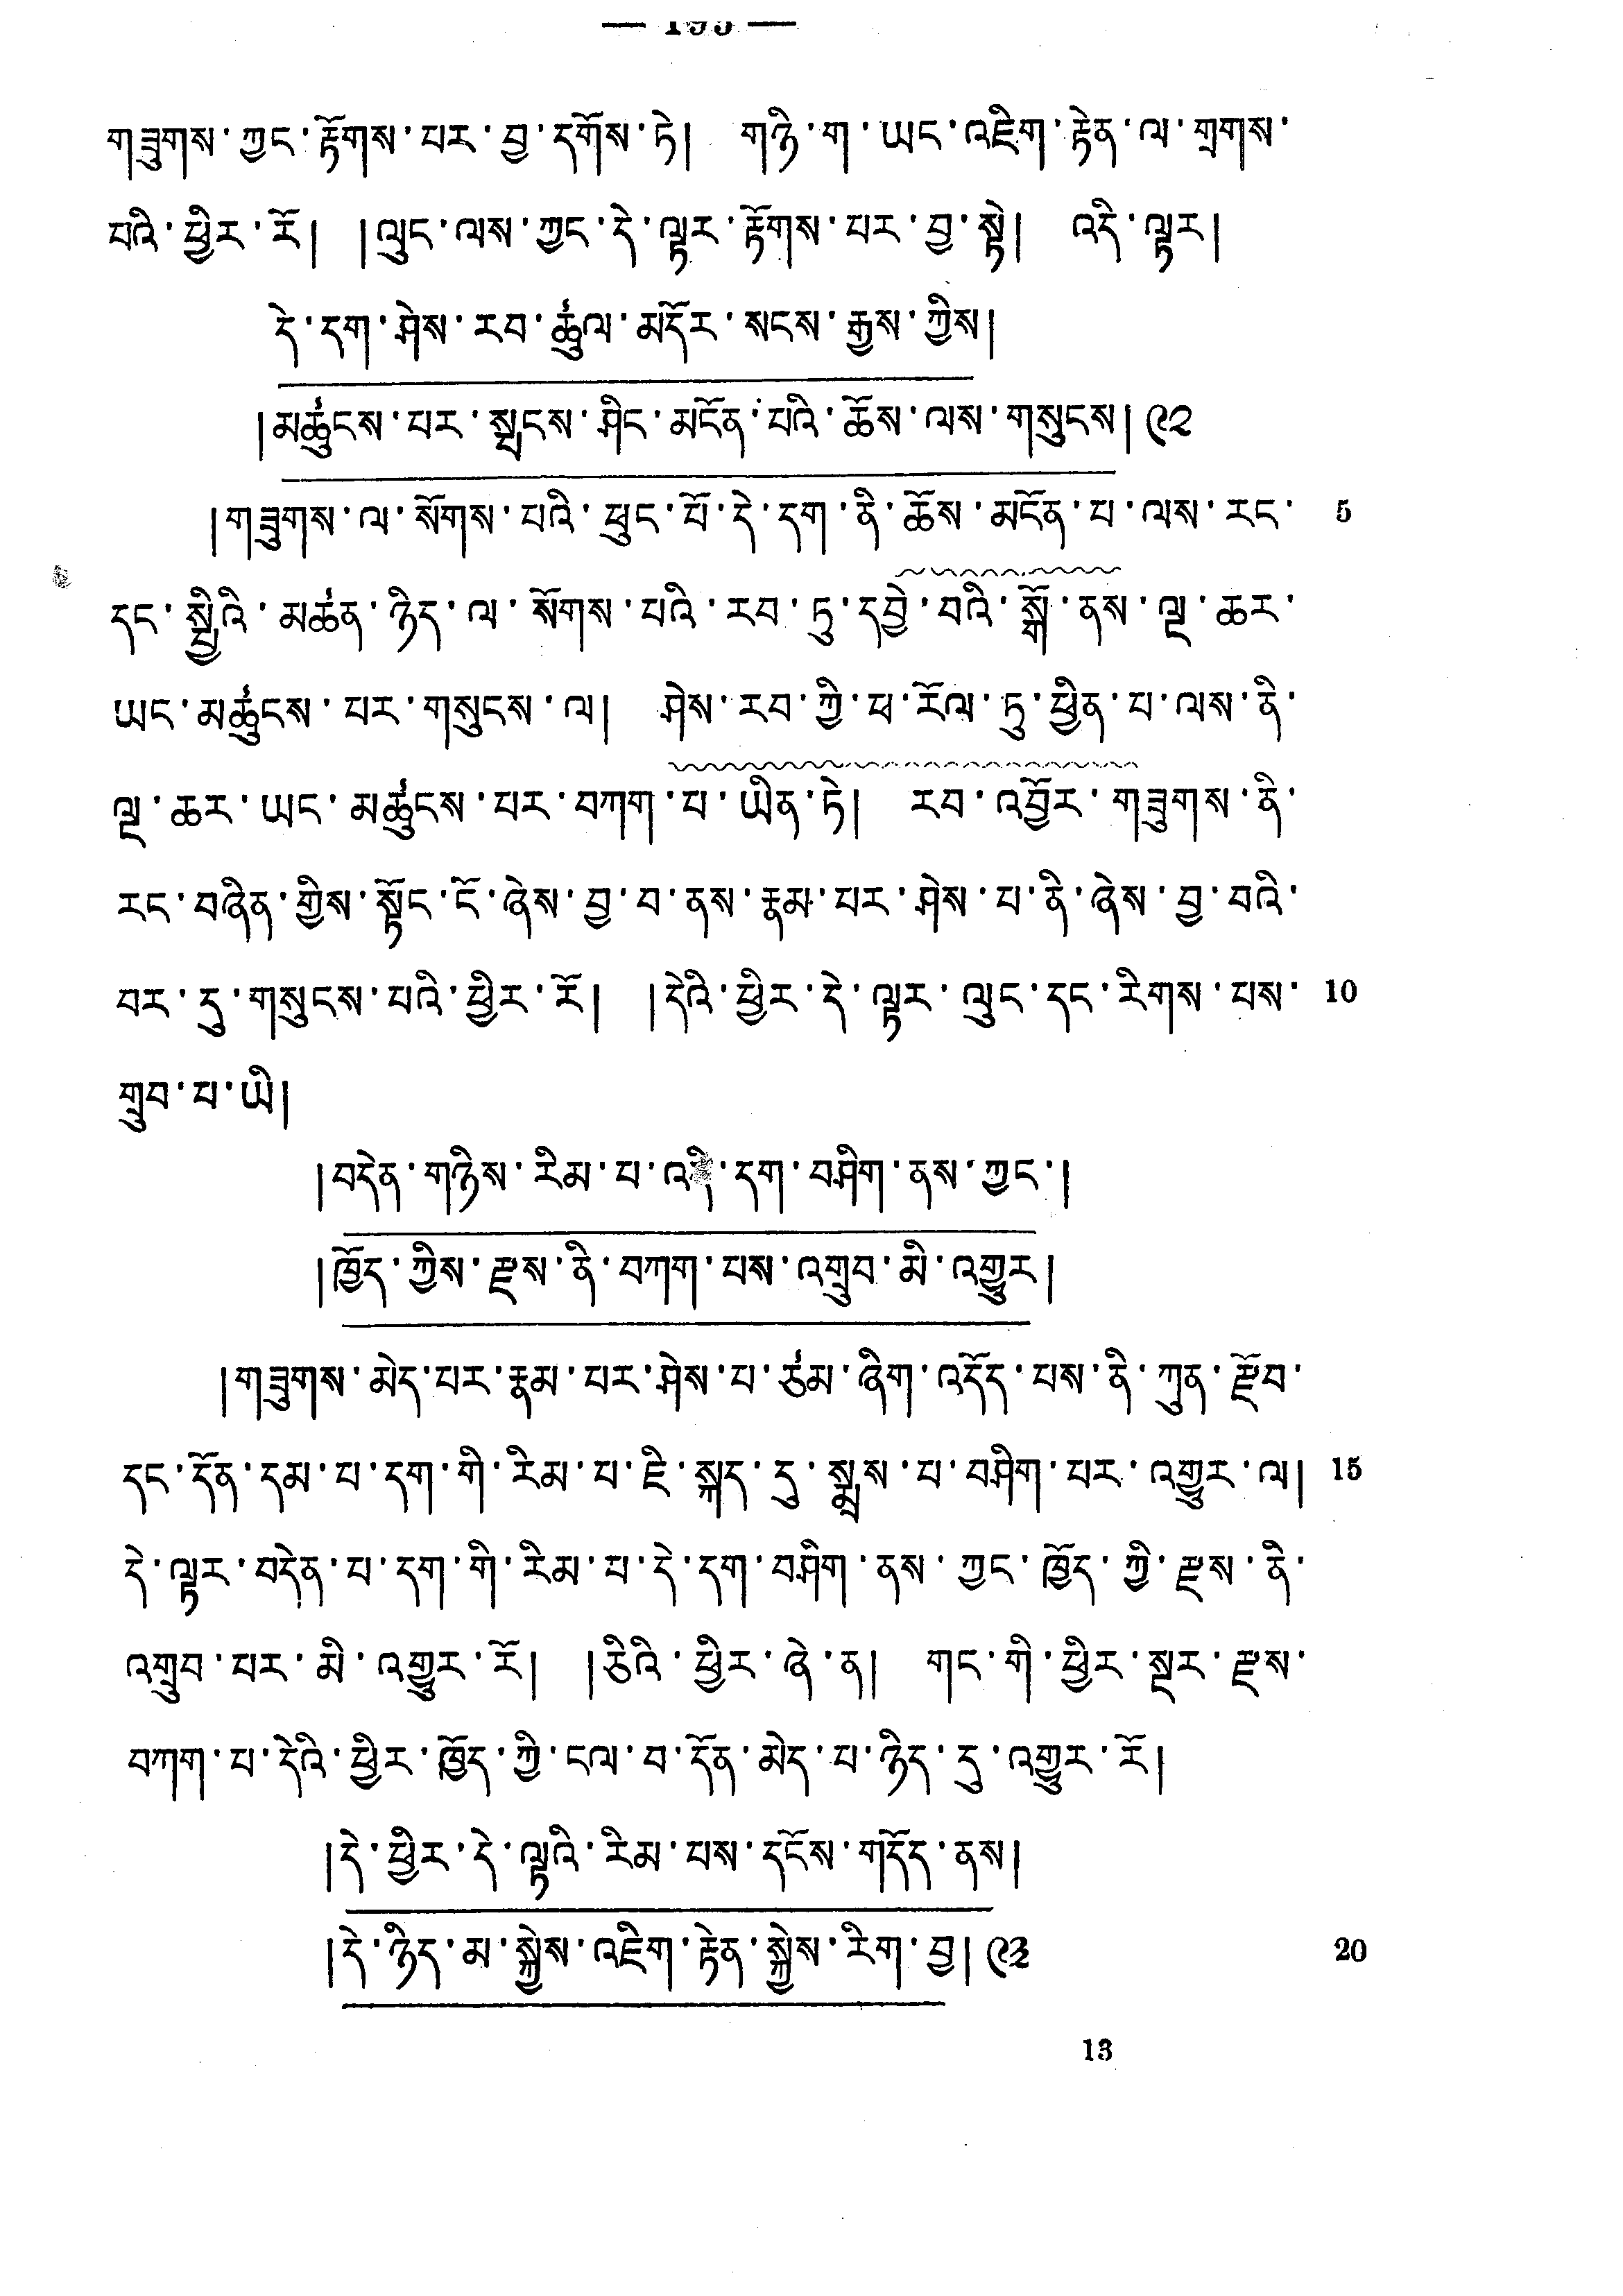 གཟུགས་ཀྱང་རྟོགས་པར་བྱ་དགོས་ཏེ། གཉི་ག་ཡང་འཇིག་རྟེན་ལ་གྲགས་
པའི་ཕྱིར་རོ། །ལུང་ལས་ཀྱང་དེ་ལྟར་རྟོགས་པར་བྱ་སྟེ། འདི་ལྟར།
དེ་དག་ཤེས་རབ་ཚུལ་མདོར་སངས་རྒྱས་ཀྱིས།
།མཚུངས་པར་སྤངས་ཤིང་མངོན་པའི་ཆོས་ལས་གསུངས། ༩༢
།གཟུགས་ལ་སོགས་པའི་ཕུང་པོ་དེ་དག་ནི་ཆོས་མངོན་པ་ལས་རང་ 5
དང་སྤྱིའི་མཚན་ཉིད་ལ་སོགས་པའི་རབ་ཏུ་དབྱེ་བའི་སྒོ་ནས་ལྔ་ཆར་
ཡང་མཚུངས་པར་གསུངས་ལ། ཤེས་རབ་ཀྱི་ཕ་རོལ་ཏུ་ཕྱིན་པ་ལས་ནི་
ལྔ་ཆར་ཡང་མཚུངས་པར་བཀག་པ་ཡིན་ཏེ། རབ་འབྱོར་གཟུགས་ནི་
རང་བཞིན་གྱིས་སྟོང་ངོ་ཞེས་བྱ་བ་ནས་རྣམ་པར་ཤེས་པ་ནི་ཞེས་བྱ་བའི་
བར་དུ་གསུངས་པའི་ཕྱིར་རོ། །དེའི་ཕྱིར་དེ་ལྟར་ལུང་དང་རིགས་པས་ 10
གྲུབ་པ་ཡི།
།བདེན་གཉིས་རིམ་པ་འདི་དག་བཤིག་ནས་ཀྱང་།
།ཁྱོད་ཀྱིས་རྫས་ནི་བཀག་པས་འགྲུབ་མི་འགྱུར།
།གཟུགས་མེད་པར་རྣམ་པར་ཤེས་པ་ཙམ་ཞིག་འདོད་པས་ནི་ཀུན་རྫོབ་
དང་དོན་དམ་པ་དག་གི་རིམ་པ་ཇི་སྐད་དུ་སྨྲས་པ་བཤིག་པར་འགྱུར་ལ། 15
དེ་ལྟར་བདེན་པ་དག་གི་རིམ་པ་དེ་དག་བཤིག་ནས་ཀྱང་ཁྱོད་ཀྱི་རྫས་ནི་
འགྲུབ་པར་མི་འགྱུར་རོ། །ཅིའི་ཕྱིར་ཞེ་ན། གང་གི་ཕྱིར་སྔར་རྫས་
བཀག་པ་དེའི་ཕྱིར་ཁྱོད་ཀྱི་ངལ་བ་དོན་མེད་པ་ཉིད་དུ་འགྱུར་རོ།
།དེ་ཕྱིར་དེ་ལྟའི་རིམ་པས་དངོས་གདོད་ནས།
།དེ་ཉིད་མ་སྐྱེས་འཇིག་རྟེན་སྐྱེས་རིག་བྱ། ༩༣ 20
13